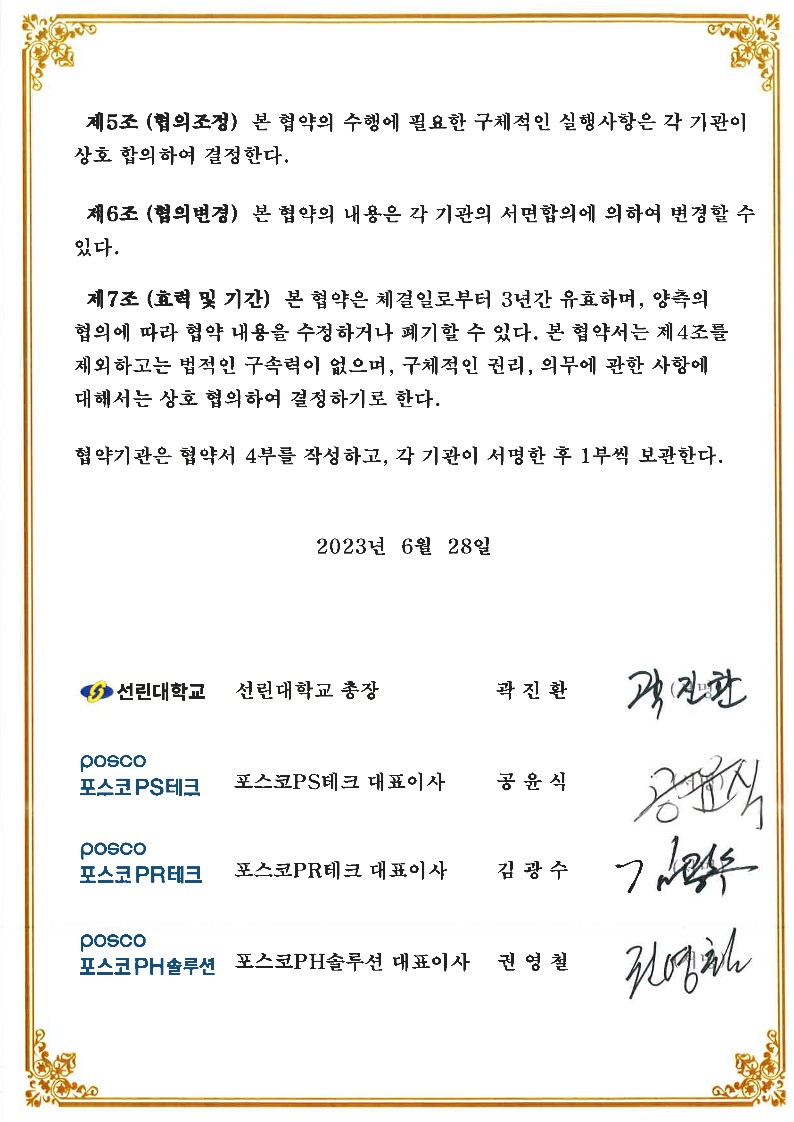 제5조 (협의조정) 본 협약의 수행에 필요한 구체적인 실행사항은 각 기관이
상호 합의하여 결정한다.
제6조 (협의변경) 본 협약의 내용은 각 기관의 서면합의에 의하여 변경할 수
있다.
제7조 (효력 및 기간) 본 협약은 체결일로부터 3년간 유효하며, 양측의
협의에 따라 협약 내용을 수정하거나 폐기할 수 있다. 본 협약서는 제4조를
제외하고는 법적인 구속력이 없으며, 구체적인 권리, 의무에 관한 사항에
대해서는 상호 협의하여 결정하기로 한다.
협약기관은 협약서 4부를 작성하고, 각 기관이 서명한 후 1부씩 보관한다.
2023년 6월 28일
선린대학교 선린대학교 총장 곽진환 곽진환
posco
포스코PS테크 포스코PS테크 대표이사 공윤식 공윤식
posco
포스코PR테크 포스코PR테크 대표이사 김광수 김광수
posco
포스코PH솔루션 포스코PH솔루션 대표이사 권영철 권영철